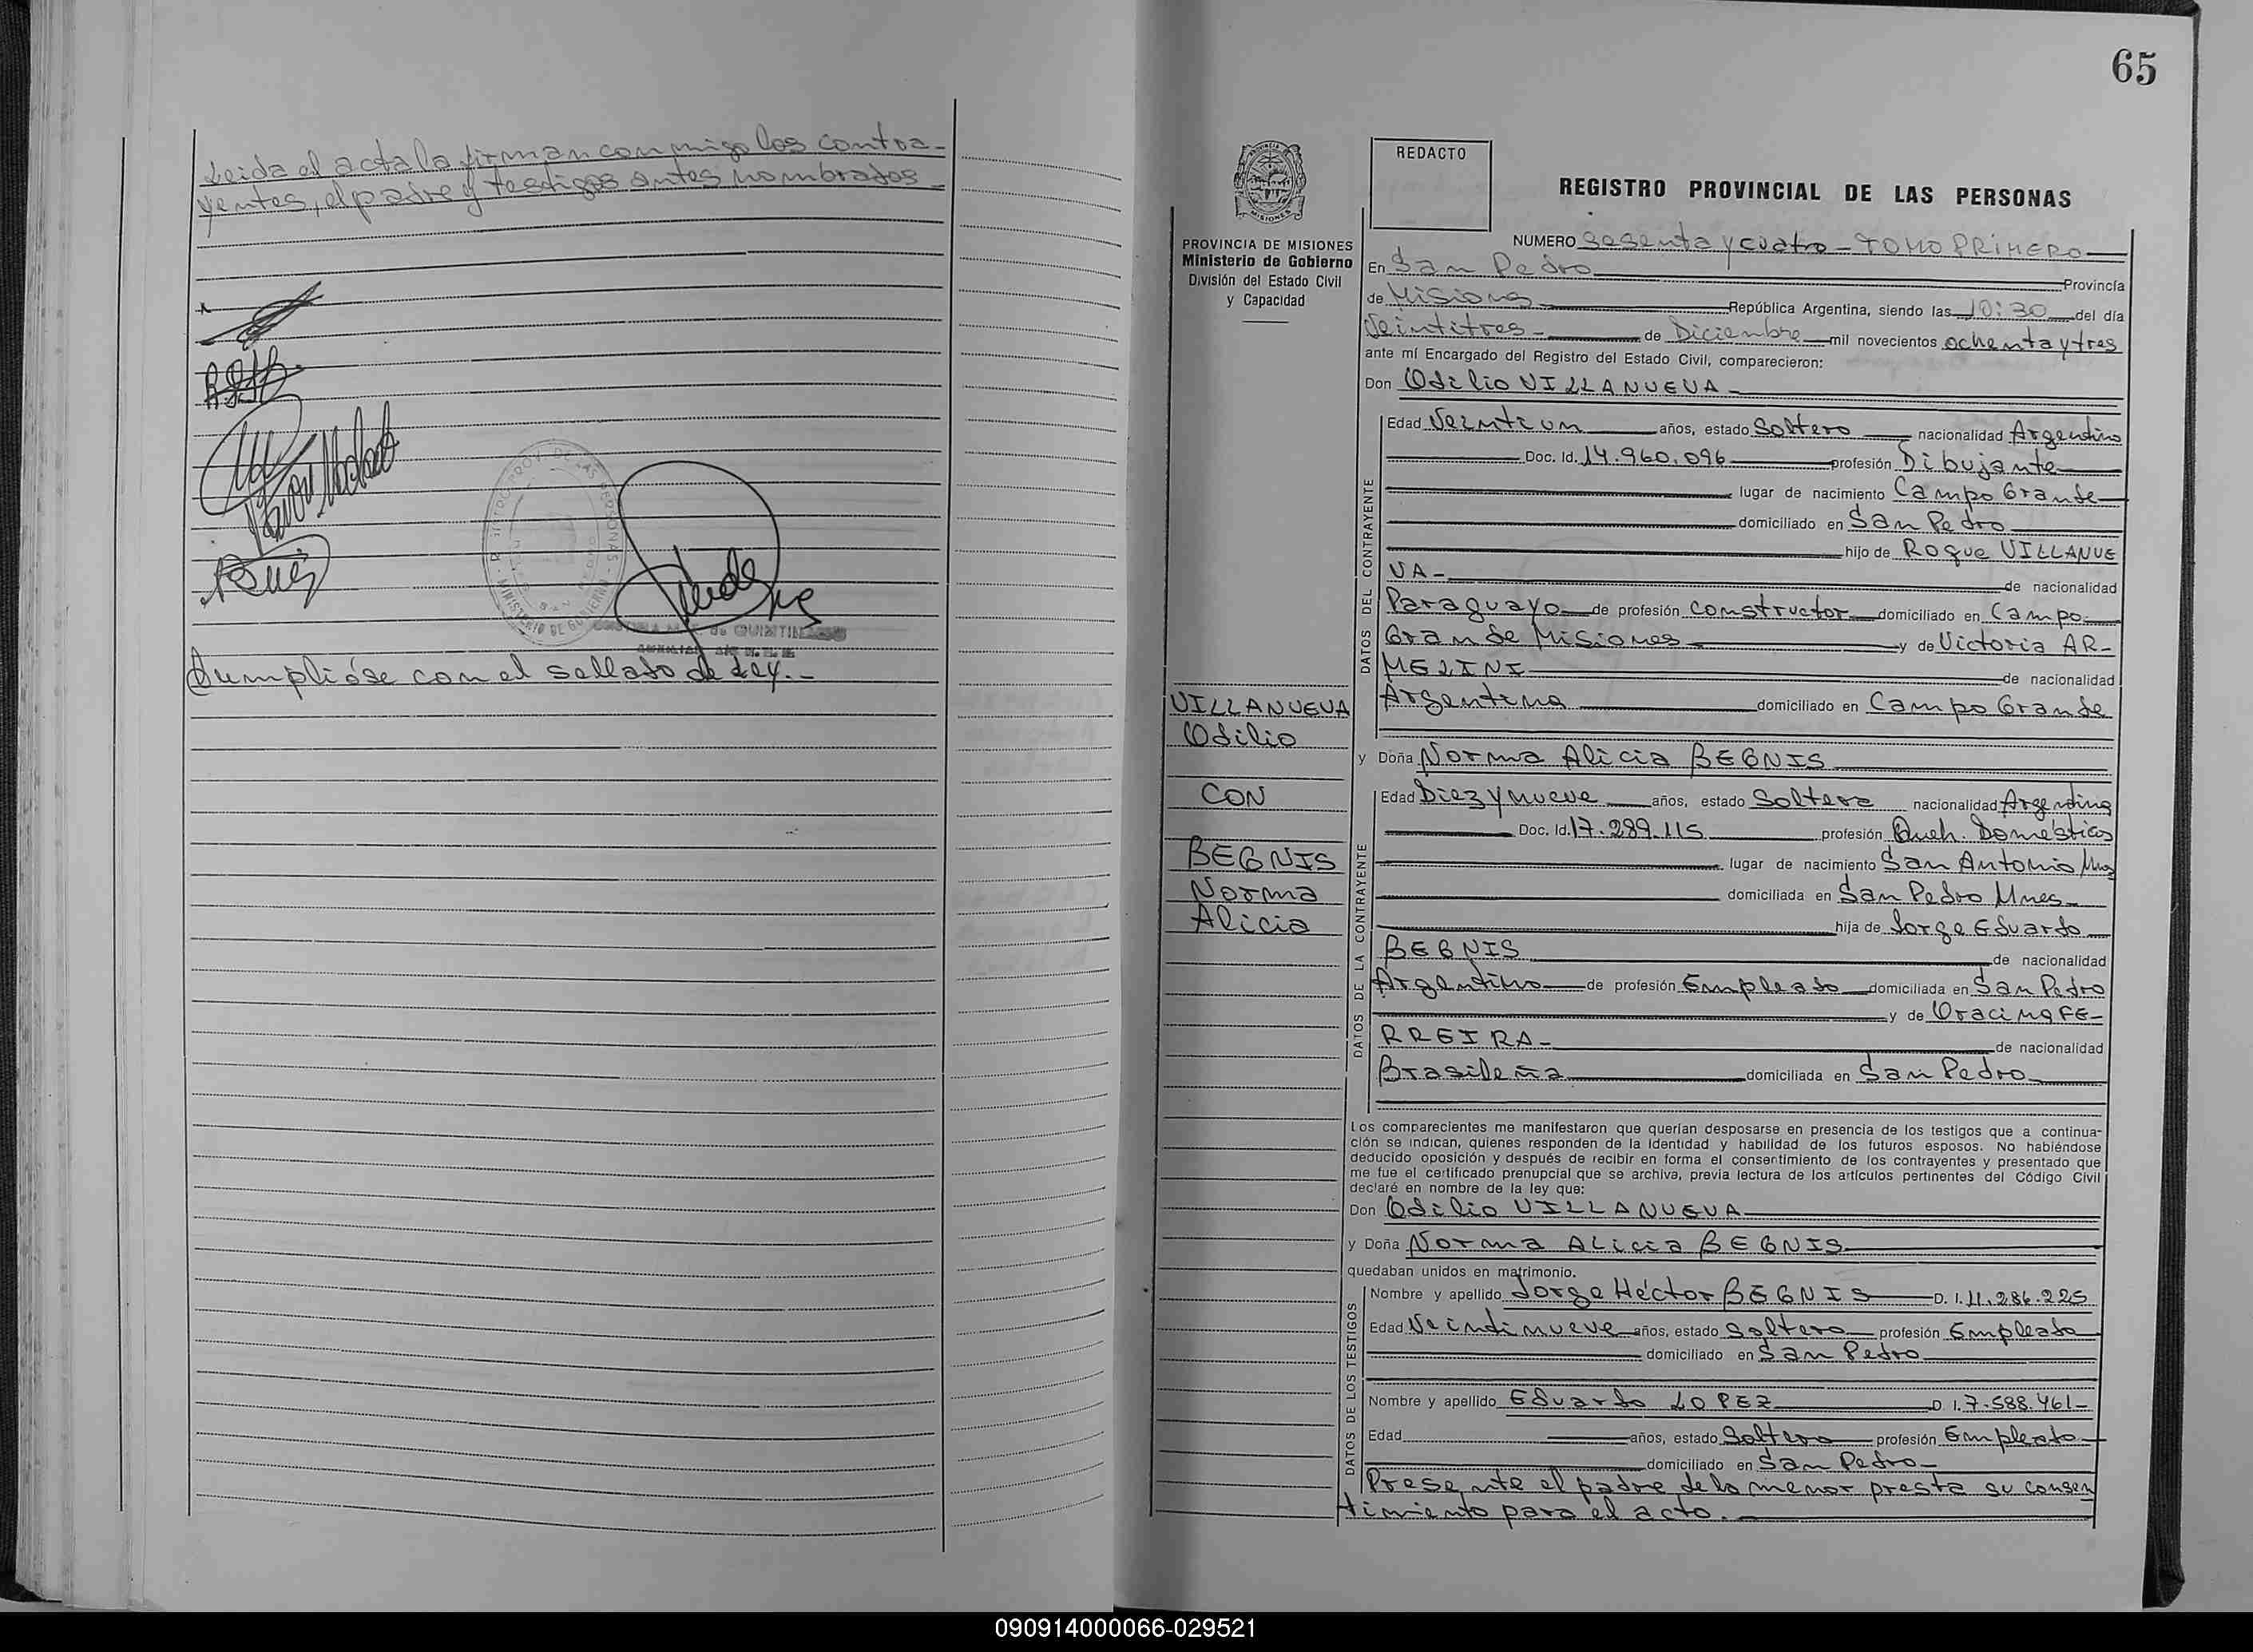 Leida el acta la firman con migo los contra-
yentes, el padre y testigos antes nombrados
Cumplióse con el sellado de Ley.-
65
REDACTO
REGISTRO PROVINCIAL DE LAS PERSONAS
PROVINCIA DE MISIONES
Ministerio de Gobierno
División del Estado Civil
y Capacidad
NUMERO Sesenta y cuatro - TOMO PRIMERO
En San Pedro Provincia
de Misiones República Argentina, siendo las 10:30 del día
Veintitres - de Diciembre mil novecientos ochenta y tres
ante mí Encargado del Registro del Estado Civil, comparecieron:
Don Odilio VILLANUEVA
DATOS DEL CONTRAYENTE
Edad Veintiun años, estado Soltero nacionalidad Argentino
Doc. Id. 14.960.096 profesión Dibujante
lugar de nacimiento Campo Grande
domiciliado en San Pedro
hijo de Roque VILLANUE
VA- de nacionalidad
Paraguayo de profesión constructor domiciliado en Campo
Grande Misiones y de Victoria AR-
MELINI de nacionalidad
Argentina domiciliado en Campo Grande
VILLANUEVA
Odilio
CON
BEGNIS
Norma
Alicia
y Doña Norma Alicia BEGNIS
DATOS DE LA CONTRAYENTE
Edad Diez y nueve años, estado Soltera nacionalidad Argentina
Doc. Id. 17.289.115 profesión Queh. Domésticos
lugar de nacimiento San Antonio Mnes
domiciliada en San Pedro Mnes
hija de Jorge Eduardo
BEGNIS de nacionalidad
Argentino de profesión Empleado domiciliada en San Pedro
y de Oracina FE-
RREIRA- de nacionalidad
Brasileña domiciliada en San Pedro
Los comparecientes me manifestaron que querían desposarse en presencia de los testigos que a continua-
ción se indican, quienes responden de la identidad y habilidad de los futuros esposos. No habiéndose
deducido oposición y después de recibir en forma el consentimiento de los contrayentes y presentado que
me fue el certificado prenupcial que se archiva, previa lectura de los artículos pertinentes del Código Civil
declaré en nombre de la ley que:
Don Odilio VILLANUEVA
y Doña Norma Alicia BEGNIS
quedaban unidos en matrimonio.
DATOS DE LOS TESTIGOS
Nombre y apellido Jorge Héctor BEGNIS D. I. 11.286.225
Edad Veintinueve años, estado Soltero profesión Empleado
domiciliado en San Pedro
Nombre y apellido Eduardo LOPEZ D. I. 7.588.461-
Edad años, estado Soltero profesión Empleado
domiciliado en San Pedro-
Presente el padre de la menor presta su consen
timiento para el acto.
090914000066-029521